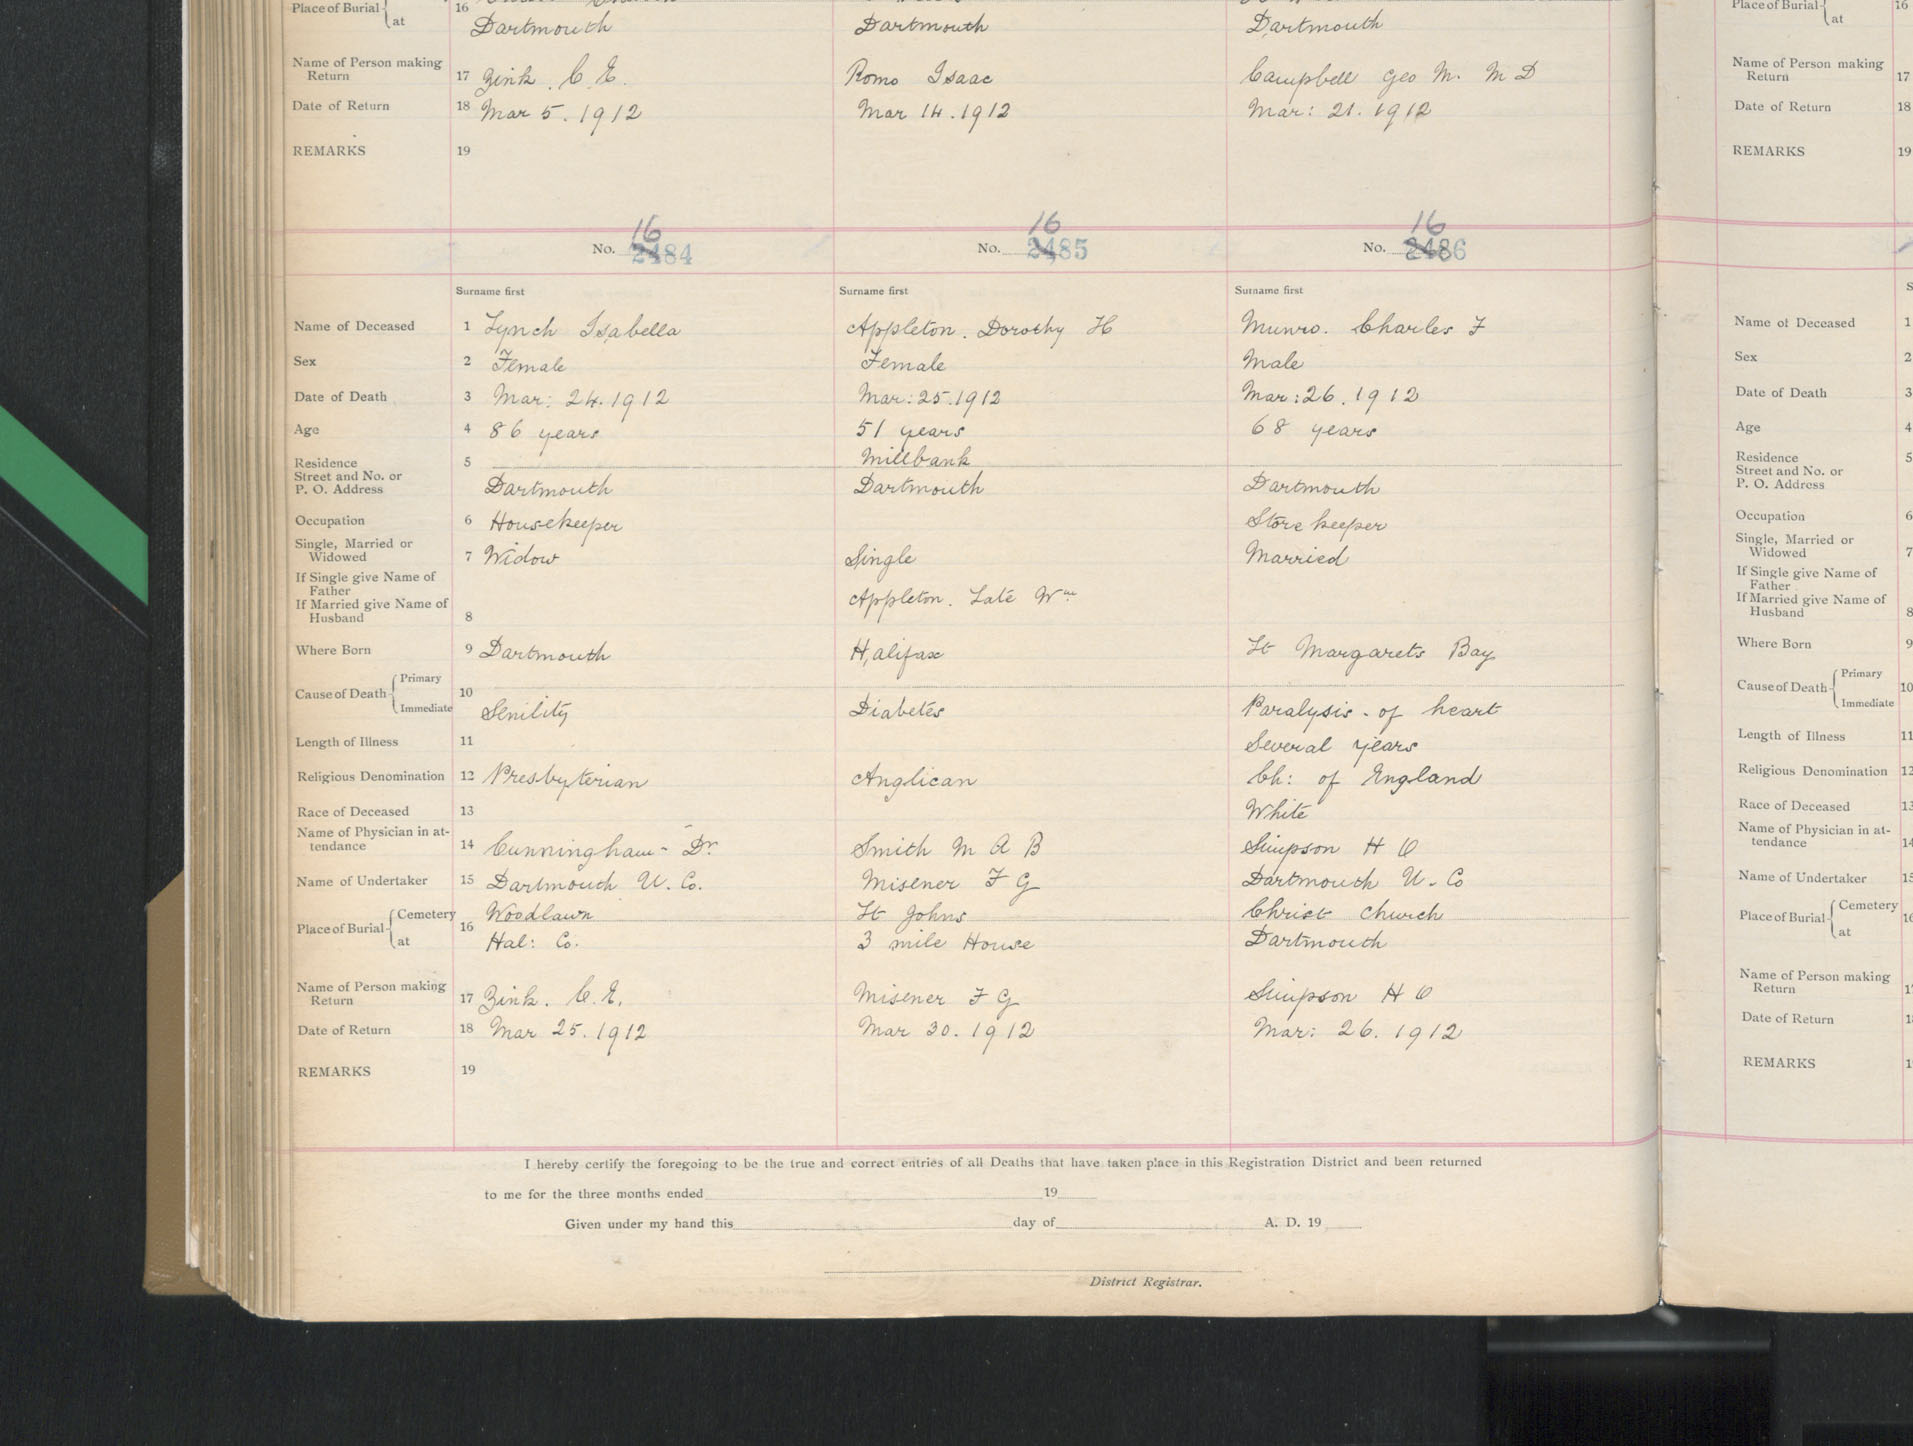 Place of Burial at 16 Dartmouth Dartmouth Dartmouth
Name of Person making Return 17 Zink. C. E. Romo Isaac Campbell Geo M. M D
Date of Return 18 Mar 5. 1912 Mar 14. 1912 Mar: 21. 1912
REMARKS 19
16 16 16
No. 2484 No. 2485 No. 2486
Surname first Surname first Surname first
Name of Deceased 1 Lynch Isabella Appleton. Dorothy H Munro. Charles F
Sex 2 Female Female Male
Date of Death 3 Mar: 24. 1912 Mar: 25. 1912 Mar: 26. 1912
Age 4 86 years 51 years 68 years
Residence 5 Millbank
Street and No. or
P. O. Address Dartmouth Dartmouth Dartmouth
Occupation 6 Housekeeper Store keeper
Single, Married or Widowed 7 Widow Single Married
If Single give Name of Father
If Married give Name of Husband 8 Appleton. Late Wm
Where Born 9 Dartmouth Halifax St Margarets Bay
Cause of Death Primary 10
Immediate Senility Diabetes Paralysis - of heart
Length of Illness 11 Several years
Religious Denomination 12 Presbyterian Anglican Ch: of England
Race of Deceased 13 White
Name of Physician in attendance 14 Cunningham - Dr Smith M A B Simpson H O
Name of Undertaker 15 Dartmouth U. Co. Misener F G Dartmouth U. Co
Place of Burial Cemetery 16 Woodlawn St Johns Christ Church
at Hal: Co. 3 mile House Dartmouth
Name of Person making Return 17 Zink. C. E. Misener F G Simpson H O
Date of Return 18 Mar 25. 1912 Mar 30. 1912 Mar: 26. 1912
REMARKS 19
I hereby certify the foregoing to be the true and correct entries of all Deaths that have taken place in this Registration District and been returned
to me for the three months ended 19
Given under my hand this day of A. D. 19
District Registrar.
Place of Burial at 16
Name of Person making Return 17
Date of Return 18
REMARKS 19
Name of Deceased 1
Sex 2
Date of Death 3
Age 4
Residence 5
Street and No. or
P. O. Address
Occupation 6
Single, Married or Widowed 7
If Single give Name of Father
If Married give Name of Husband 8
Where Born 9
Cause of Death Primary 10
Immediate
Length of Illness 11
Religious Denomination 12
Race of Deceased 13
Name of Physician in attendance 14
Name of Undertaker 15
Place of Burial Cemetery 16
at
Name of Person making Return
Date of Return
REMARKS